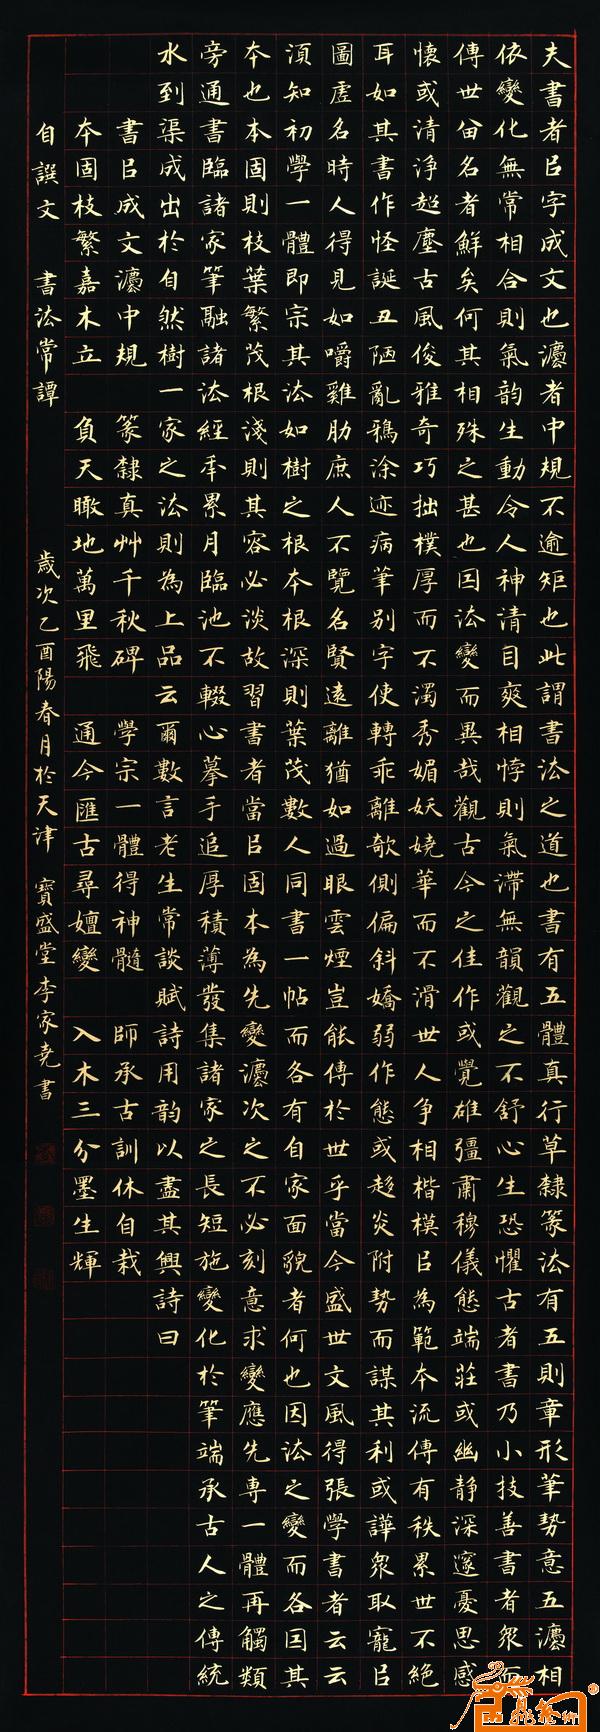 夫書者㠯字成文也灋者中規不逾矩也此謂書法之道也書有五體真行草隸篆法有五則章形筆勢意五灋相
依變化無常相合則氣韵生動令人神清目爽相悖則氣滯無韻觀之不舒心生恐懼古者書乃小技善書者眾而
傳世留名者鮮矣何其相殊之甚也因法變而異哉觀古今之佳作或覺雄彊肅穆儀態端莊或幽靜深邃憂思感
懷或清淨超塵古風俊雅奇巧拙樸厚而不濁秀媚妖嬈華而不滑世人爭相楷模㠯為範本流傳有秩累世不絕
耳如其書作怪誕丑陋亂鴉涂迹病筆別字使轉乖離欹側偏斜嬌弱作態或趁炎附勢而謀其利或譁眾取寵㠯
圖虛名時人得見如嚼雞肋庶人不覽名賢遠離猶如過眼雲煙豈能傳於世乎當今盛世文風得張學書者云云
須知初學一體即宗其法如樹之根本根深則葉茂數人同書一帖而各有自家面貌者何也因法之變而各因其
本也本固則枝葉繁茂根淺則其容必淡故習書者當㠯固本為先變灋次之不必刻意求變應先專一體再觸類
旁通書臨諸家筆融諸法經年累月臨池不輟心摹手追厚積薄發集諸家之長短施變化於筆端承古人之傳統
水到渠成出於自然樹一家之法則為上品云爾數言老生常談賦詩用韵以盡其興詩曰
書㠯成文灋中規 篆隸真艸千秋碑 學宗一體得神髓 師承古訓休自栽
本固枝繁嘉木立 負天瞰地萬里飛 通今匯古尋嬗變 入木三分墨生輝
自譔文 書法常譚 歲次乙酉陽春月於天津 寶盛堂李家堯書